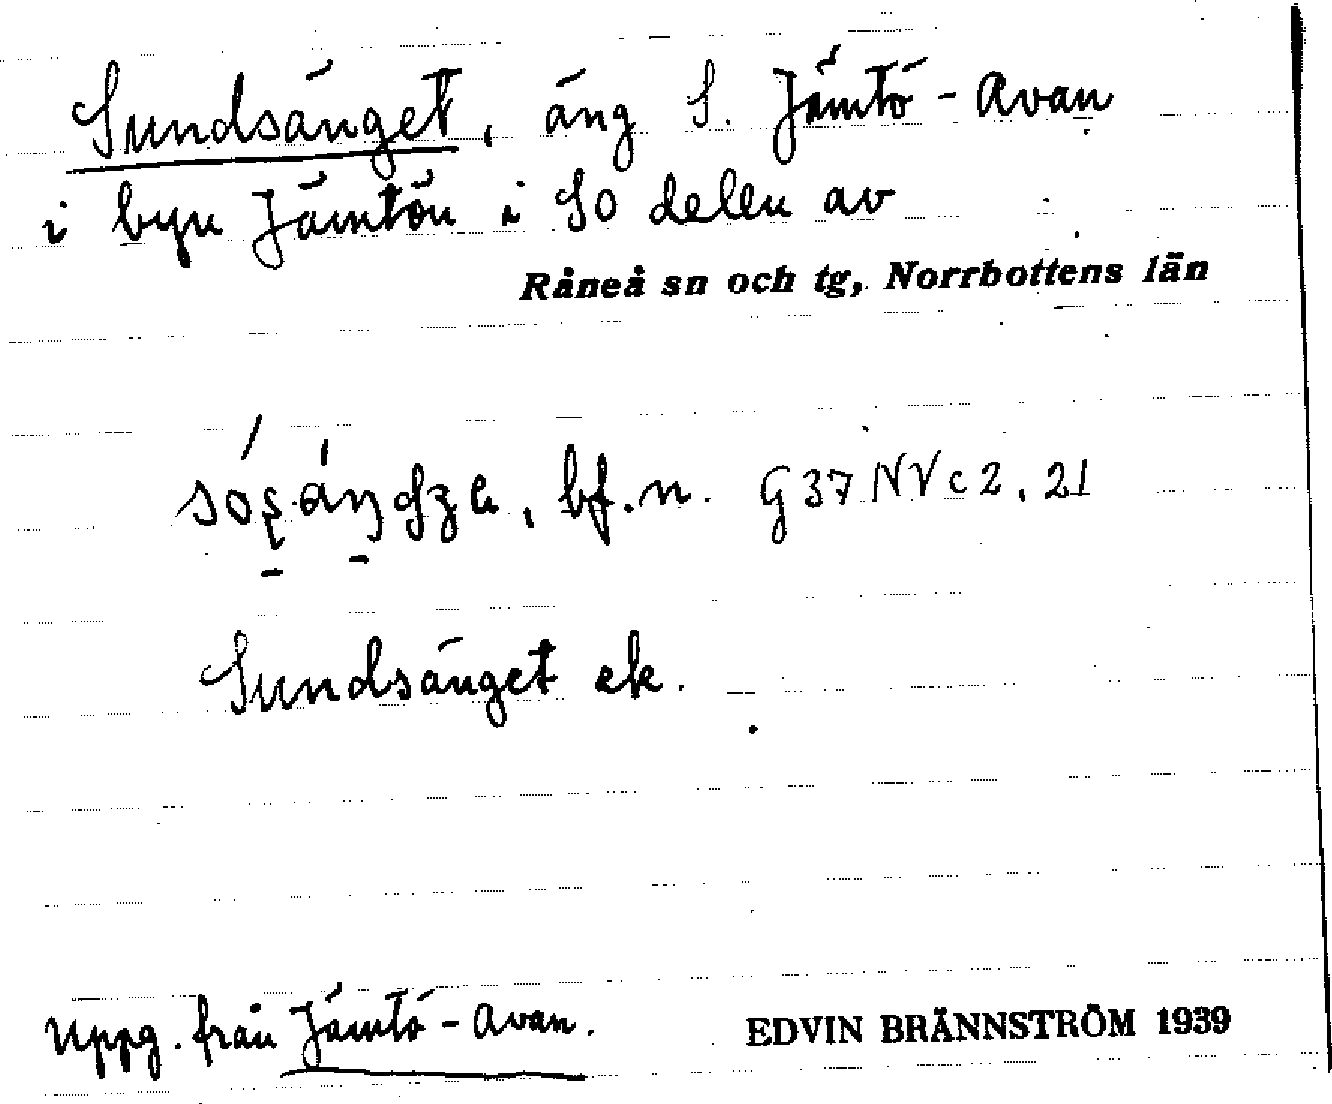 Sundsänget, äng S. Jämtö-Avan
i byn Jämtön i SO delen av
Råneå sn och tg, Norrbottens län
bf. n. G37NVc2, 21
Sundsänget ek.
Uppg. från Jämtö-Avan.
EDVIN BRÄNNSTRÖM 1939